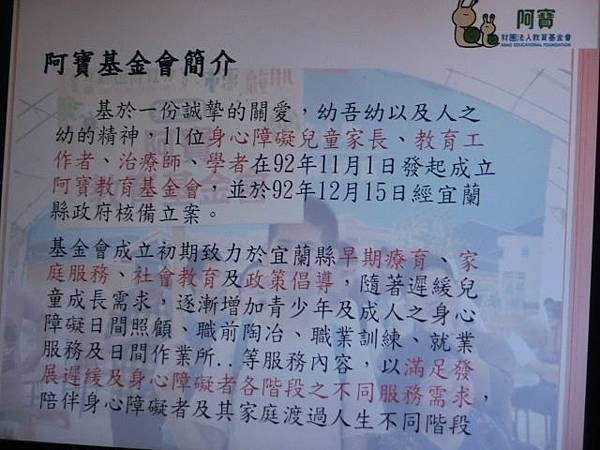 阿寶
財團法人教育基金會
ABAO EDUCATIONAL FOUNDATION
阿寶基金會簡介
基於一份誠摯的關愛，幼吾幼以及人之
幼的精神，11位身心障礙兒童家長、教育工
作者、治療師、學者在92年11月1日發起成立
阿寶教育基金會，並於92年12月15日經宜蘭
縣政府核備立案。
基金會成立初期致力於宜蘭縣早期療育、家
庭服務、社會教育及政策倡導，隨著遲緩兒
童成長需求，逐漸增加青少年及成人之身心
障礙日間照顧、職前陶冶、職業訓練、就業
服務及日間作業所..等服務內容，以滿足發
展遲緩及身心障礙者各階段之不同服務需求，
陪伴身心障礙者及其家庭渡過人生不同階段